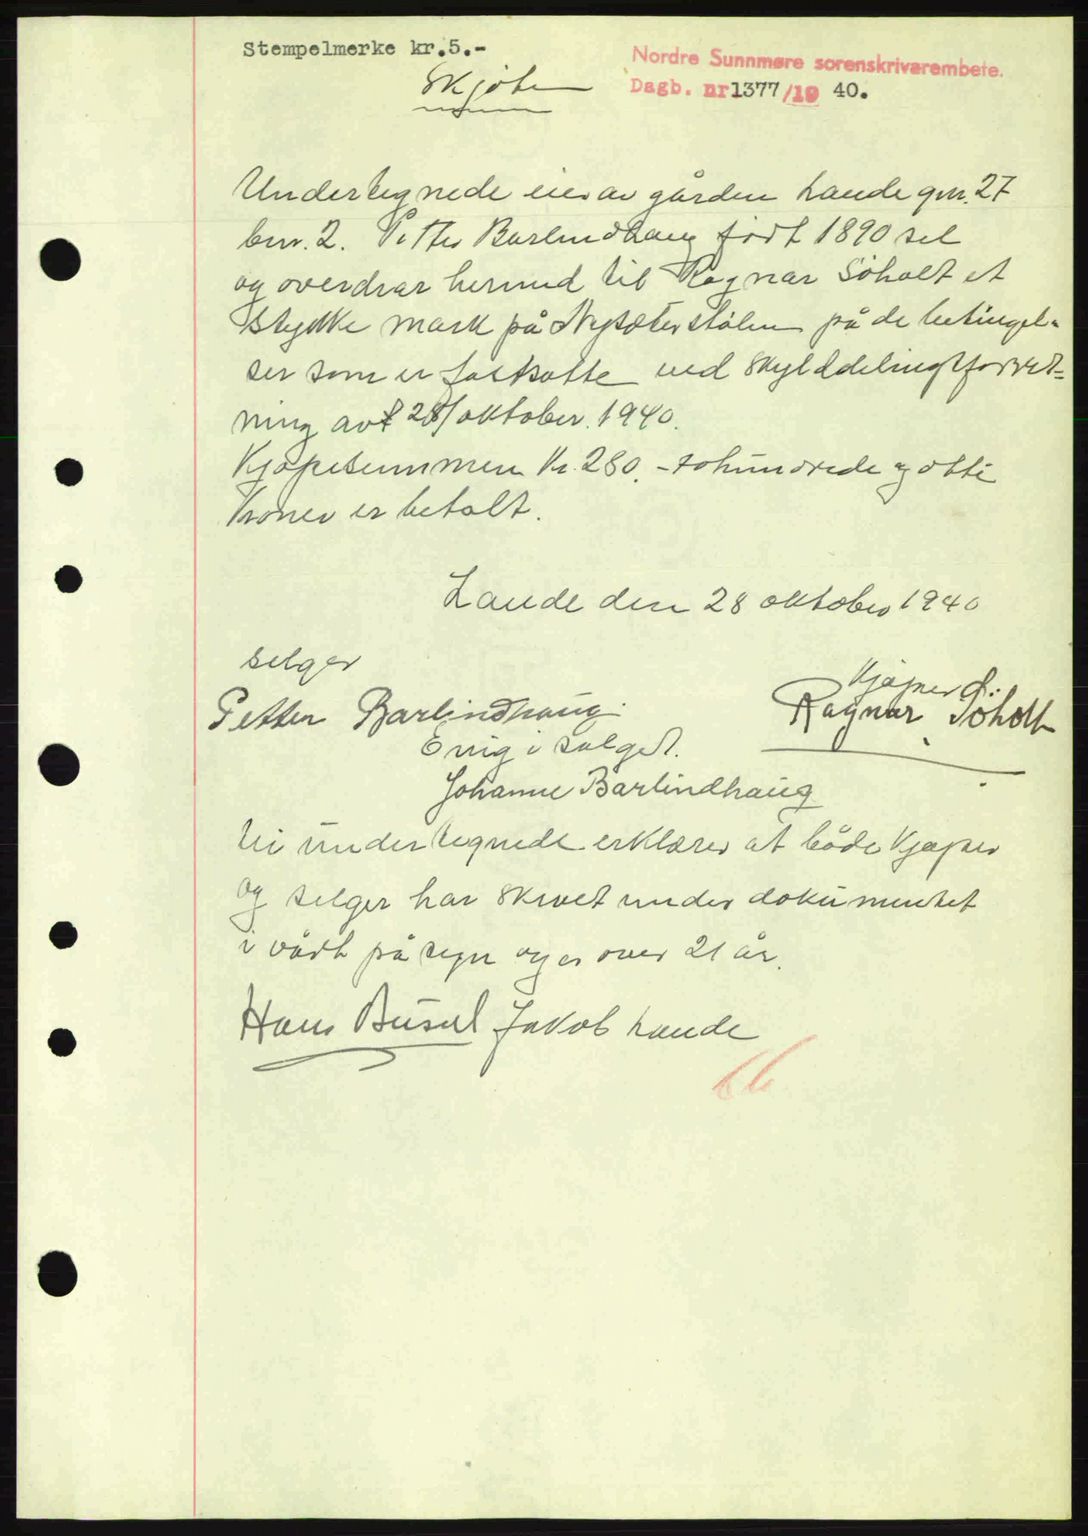 Stempelmerke kr.5.-
Nordre Sunnmøre sorenskriverembete.
Dagb. nr 1377/19 40.
Skjøte
Undertegnede eier av gården Lande gnr. 27
bnr. 2. Petter Barlindhaug født 1890 sel
og overdrar hermed til Ragnar Søholt et
stykke mark på Nysæterstølen på de betingel-
ser som er fastsatte ved skylddelingsforret-
ning av 28/oktober. 1940.
Kjøpesummen Kr. 280.- tohundrede og otti
Kroner er betalt.
Lande den 28 oktober 1940
selger
Kjøper
Petter Barlindhaug.
Ragnar Söholt
Enig i salget.
Johanne Barlindhaug
Vi undertegnede erklærer at både Kjøper
og selger har skrevet under dokumentet
i vårt påsyn og er over 21 år.
Hans Busul Jakob Lande